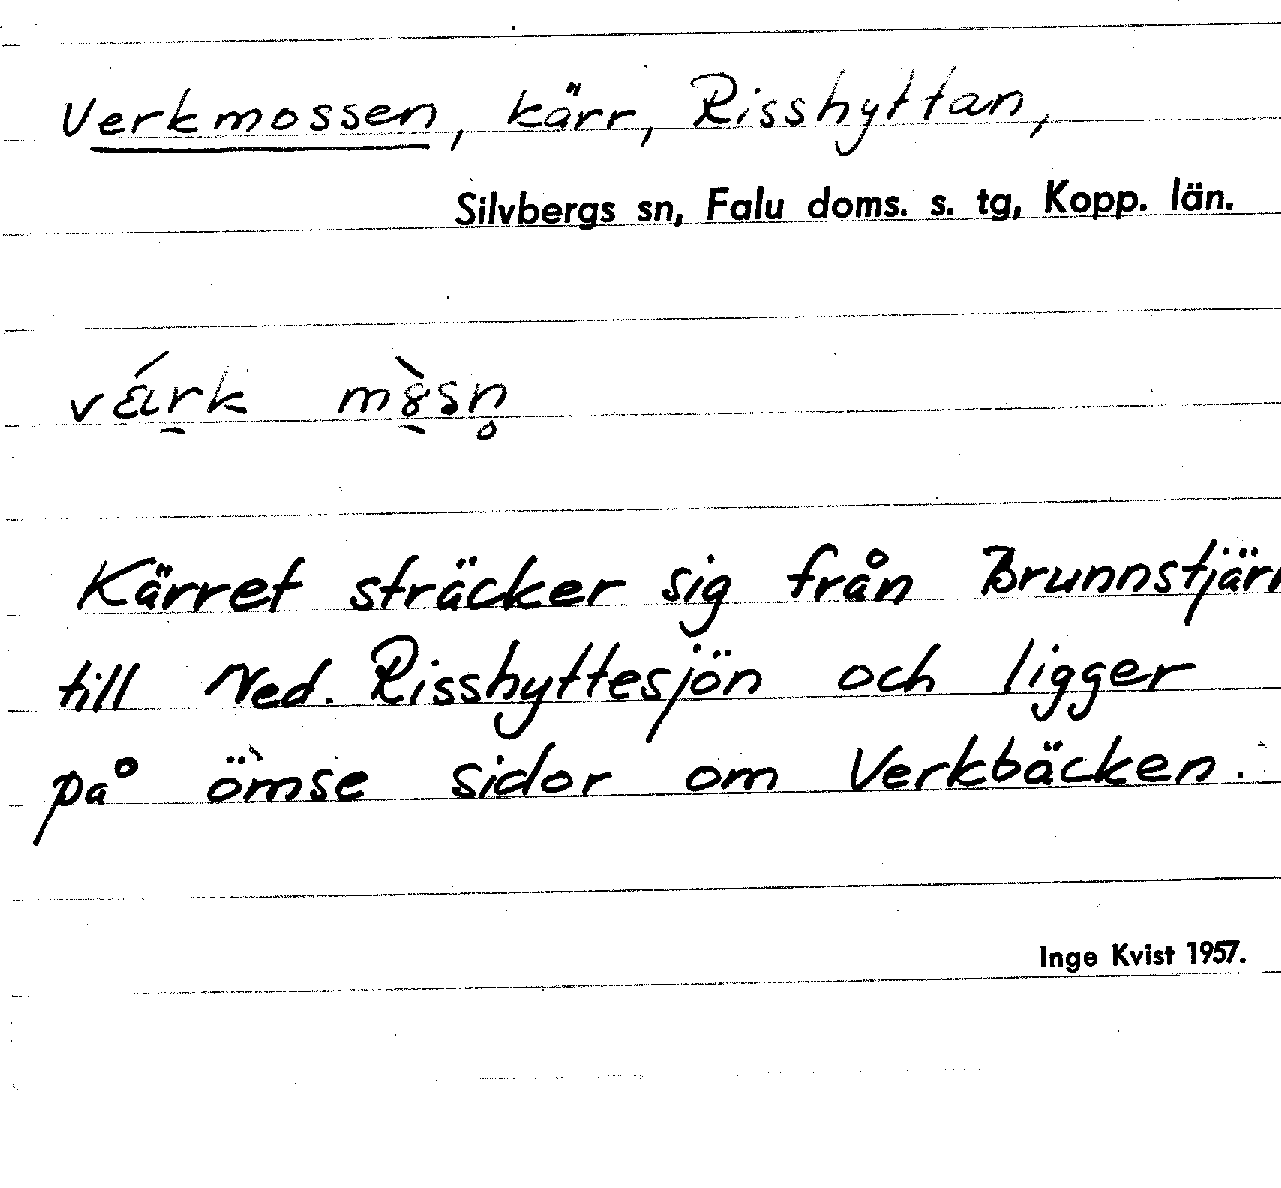 Verkmossen, kärr, Risshyttan,
Silvbergs sn, Falu doms. s. tg, Kopp. län.
Kärret sträcker sig från Brunnstjärn
till Ned. Risshyttesjön och ligger
på ömse sidor om Verkbäcken.
Inge Kvist 1957.